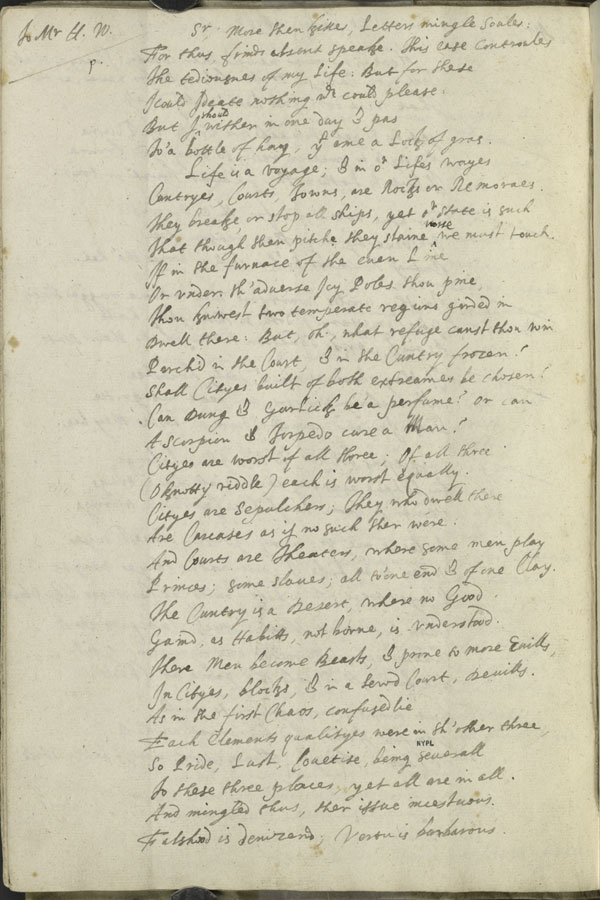 To Mr H. W.
Sr. More then kisses, Letters mingle Soules:
For thus frinds absent speake. This ease controules
The tediousnes of my Life: But for these
I could Ideate nothing wch could please.
But I should wither in one day & pas
To'a bottle of hay, yt ame a Lock of gras.
Life is a voyage; & in or Lifes wayes
Cuntryes, Courts, Towns, are Rocks or Remoraes.
They breake or stop all ships, yet or state is such
That though then pitche they staine worse, we must touch.
If in the furnace of the euen Line
Or vnder th'aduerse Icy Poles thou pine,
Thou knowest two temperate regions girded in
Dwell there: But, oh, what refuge canst thou win
Parch'd in the Court, & in the Cuntry frozen?
Shall Cityes built of both extreames be chosen?
Can Dung & Garlick be'a perfume? or can
A Scorpion & Torpedo cure a Man?
Cityes are worst of all three; Of all three
(O knotty riddle) each is worst equally.
Cityes are Sepulchers; They who dwell there
Are Carcases as if no such ther were.
And Courts are Theaters, where some men play
Princes; some slaues; all to'one end & of one Clay.
The Cuntry is a Desert, where no Good
Gaind, as Habitts, not borne, is vnderstood.
There Men become Beasts, & prone to more Euills,
In Cityes, blocks, & in a Lewd Court, Deuills.
As in the first Chaos, confusedlie
Each Elements qualityes were in th'other three,
NYPL
So Pride, Lust, Couetise, being seuerall
To these three places, yet all are in all.
And mingled thus, ther issue incestuous.
Falshood is denizend; Vertu is barbarous.